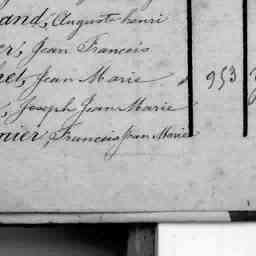 and, Auguste henri
er, Jean Francois
het, Jean Marie 953
, Joseph Jean Marie
nier, Francois Jean Marie